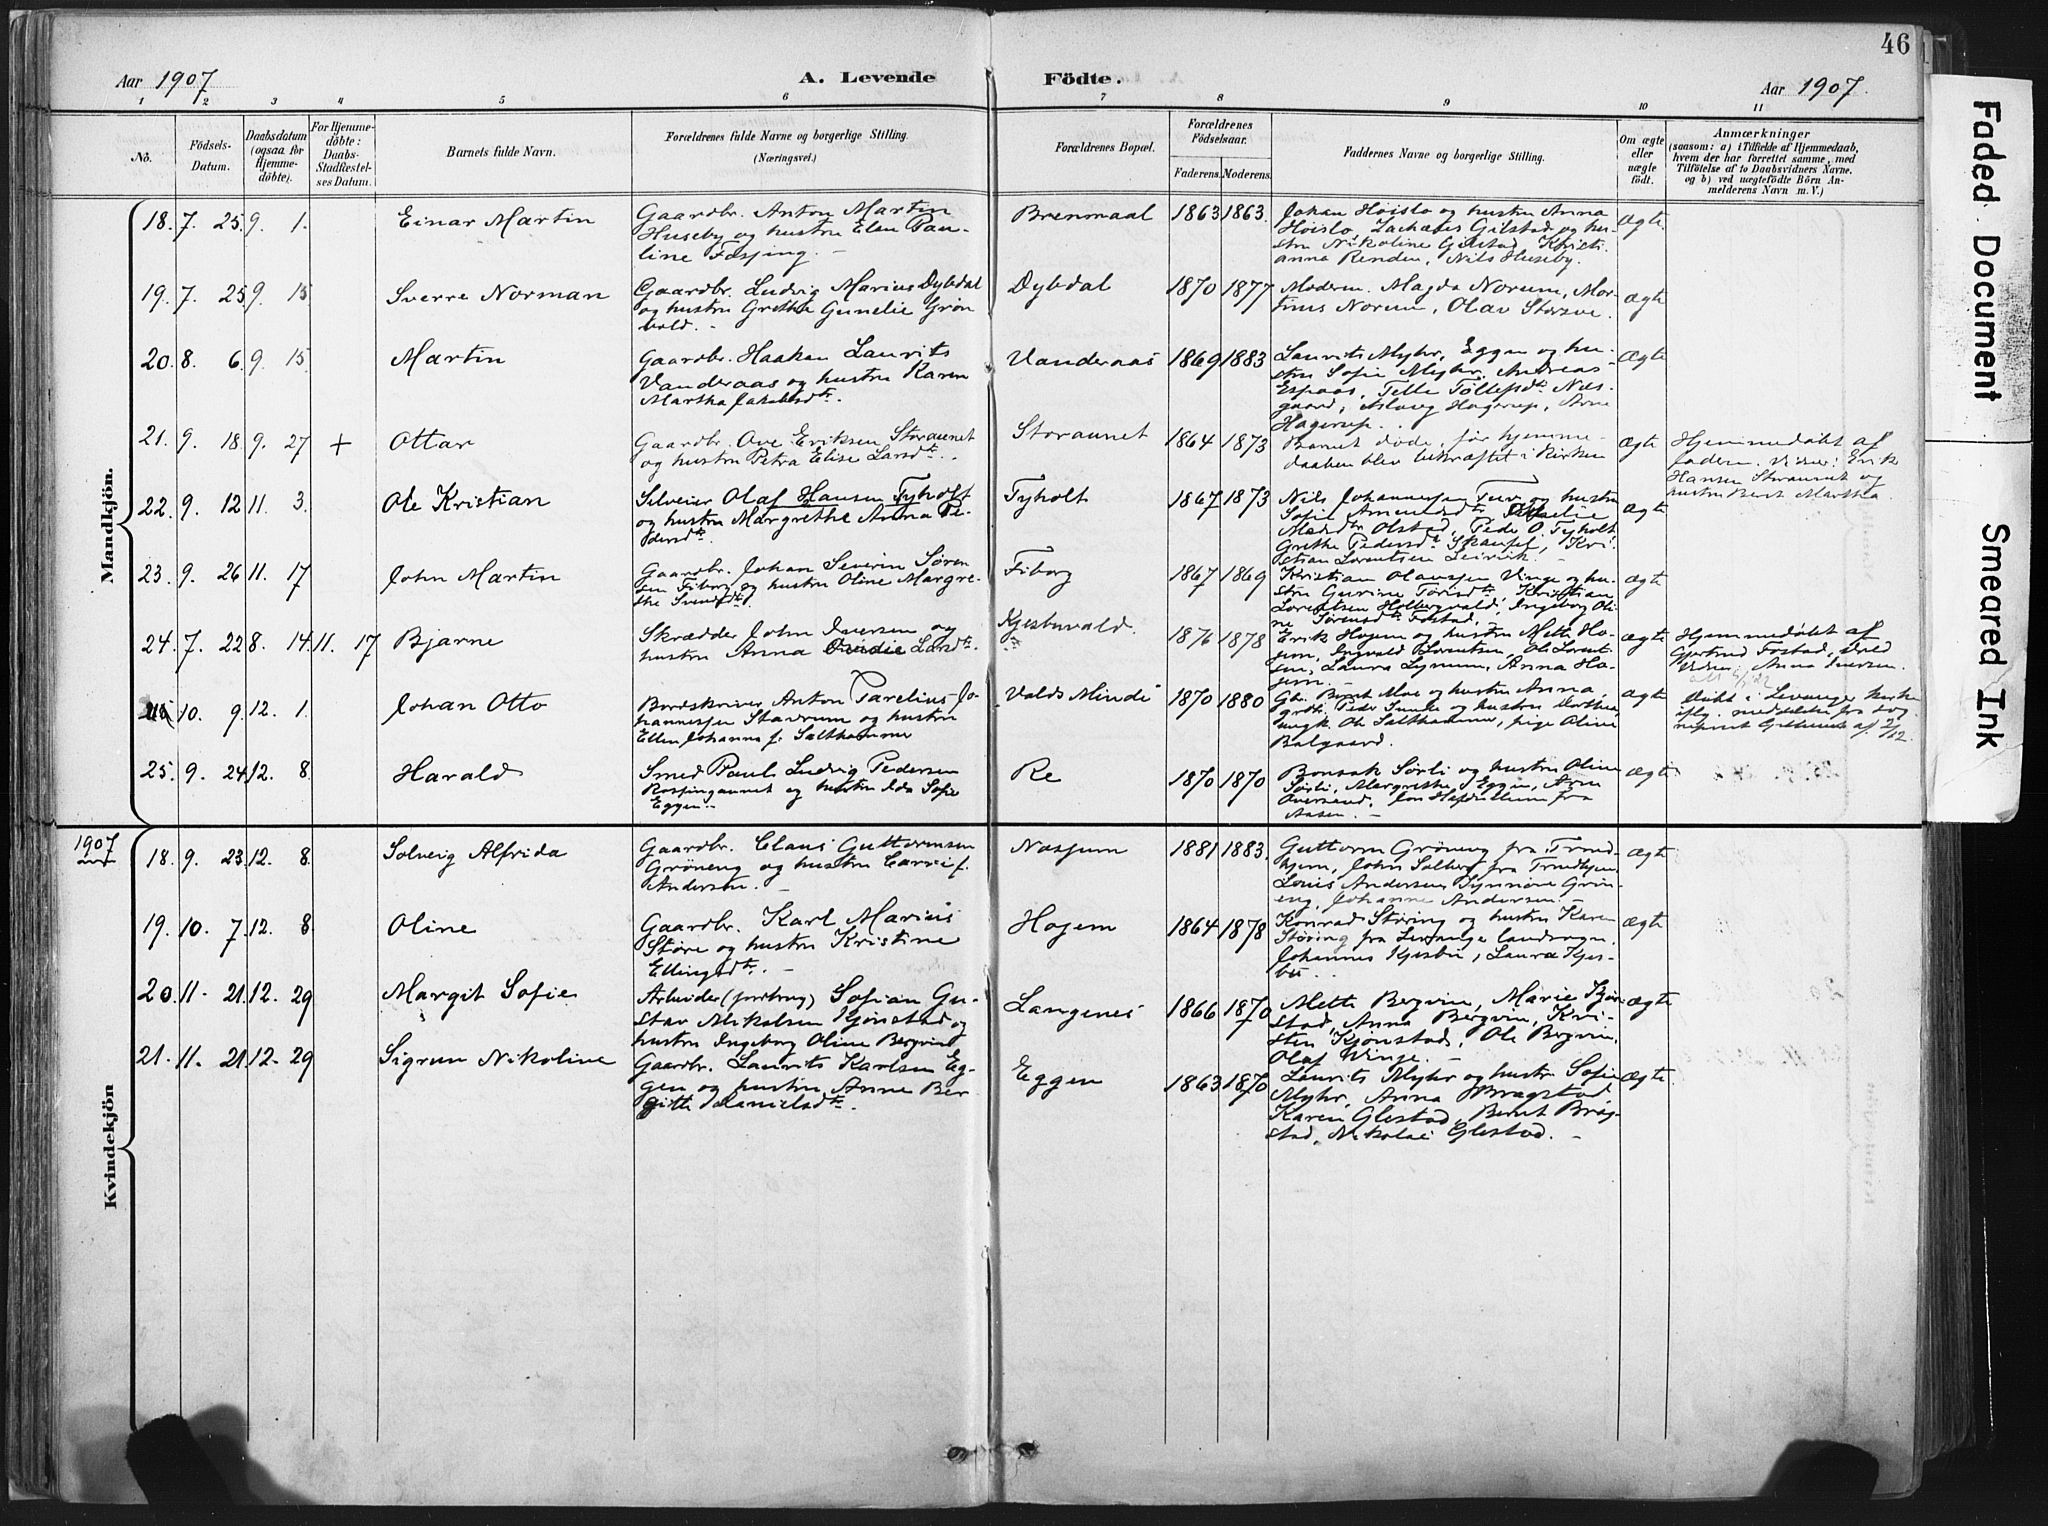 46
Aar 1907
A. Levende Födte.
Aar 1907.
1 2 3 4 5 6 7 8 9 10 11
No.
Födsels-
Datum.
Daabsdatum
(ogsaa for
Hjemme-
döbte).
For Hjemme-
döbte:
Daabs-
Stadfæstel-
ses Datum.
Barnets fulde Navn.
Forældrenes fulde Navne og borgerlige Stilling.
(Næringsvei.)
Forældrenes Bopæl.
Forældrenes
Födselsaar.
Faderens. Moderens.
Faddernes Navne og borgerlige Stilling.
Om ægte
eller
uægte
födt.
Anmærkninger
(saasom: a) i Tilfælde af Hjemmedaab,
hvem der har forrettet samme, med
Tilföielse af to Daabsvidners Navne.
og b) ved uægtefödte Börn An-
melderens Navn m. V.)
Mandkjön.
18. 7. 25. 9. 1. Einar Martin
Gaardbr. Anton Martin
Huseby og hustru Elen Pau-
line Fæsjing.
Brenmaal 1863 1863.
Johan Hoislo og hustru Anna
Hoislo, Zachæus Gilstad og hu-
stru Nikoline Gilstad, Kristi-
anna Renden, Nils Huseby.
Ægte
19. 7. 25. 9. 15 Sverre Norman
Gaardbr. Ludvig Marius Dybdal
og hustru Grethe Gunelie Grön
vold.
Dybdal 1870 1877
Moderen. Magda Norum, Mar-
tinus Norum, Olav Storsve.
Ægte
20. 8. 6. 9. 15. Martin
Gaardbr. Haakan Laurits
Vanderaas og hustru Karen
Martha Jakobsdtr.
Vanderaas 1869 1883
Laurits Myhr, Eggen og hu-
stru Sofie Myhr, Andreas
Espaas, Telle Tollefsdtr. Næs-
gaard, Aslaug Hagerup, Arne
Hagerup.
Ægte
21. 9. 18. 9. 27 + Ottar
Gaardbr. Ove Eriksen Storaunet
og hustru Petra Elise Larsdtr.
Storaunet 1864 1873
Barnet döde, för hjemme-
daaben blev bekræftet i kirken
Ægte
Hjemmedöbt af
faderen. Vidner: Erik
Hansen Storaunet og
hustru Berit Martha
22. 9. 12 11. 3. Ole Kristian
Selveier Olaf Hansen Tyholt
og hustru Margrethe Anna Pe-
dersdtr.
Tyholt 1867 1873
Nils Johannessen Tuv og hustru
Olstad, Peder O. Tyholt
Grethe Pedersdtr. Skansel, Kri-
stian Lorentsen Leirvik.
Ægte
23. 9. 26 11. 17 John Martin
Gaardbr. Johan Severin Sören
sen Fiborg og hustru Oline Margre-
the Svendsdtr.
Fiborg 1867 1869
Kristian Olaussen Vinge og hu-
stru Gurine Toresdtr, Kristian
Lorentsen Holbergvald, Ingeborg Oli-
ne Sörensdtr. Fostad.
Ægte
24. 7. 22 8. 14. 11. 17 Bjarne
Skrædder John Iversen og
hustru Anna Ovidie Larsdtr.
Kjesbuvald. 1876 1878
Erik Hojem og hustru Mette Ho-
jem, Ingvald Lorentsen, Ole Lorent-
sen, Laura Lynum, Anna Ho-
jem.
Ægte
Hjemmedöbt af
Gjertrud Fostad, Vold
Vidne: Anna Iversen.
10. 9. 12. 1. Johan Otto
Bordskriver Anton Parelius Jo-
hannessen Stavrum og hustru
Ellen Johanna f. Salthammer
Valds Minde 1870 1880
Gbr. Bernt Moe og hustru Anna,
grdbr. Peder Sunde og hustru Dorthea
ungk. Ole Salthammer, pige Oline
Balgaard.
Ægte
Döbt i Levanger kirke
iflg. meddelelse fra sog-
nepræst af 2/12.
25. 9. 24. 12. 8. Harald
Smed Paul Ludvig Pedersen
Rosfingaunet og hustru Ida Sofie
Eggen.
Re 1870 1870
Bonsak Sörli og hustru Oline
Sörli, Margrethe Eggen, Arne
Overland, fra
Aasen.
Ægte
Kvindekjön
1907
18. 9. 23. 12. 8. Solveig Alfrida
Gaardbr. Claus Guttormsen
Gröneng og hustru Carrie f.
Andersen.
Næsjum 1881 1883.
Guttorm Gröneng fra Trond-
hjem, John Solberg fra Trondhjem,
Louis Andersen, Synnöve Grön-
eng, Johanne Andersen.
Ægte
19. 10. 7. 12. 8 Oline
Gaardbr. Karl Marius
Störe og hustru Kristine
Ellingsdtr.
Hojem 1864 1878
Konrad Störing og hustru Karen
Störing fra Levanger landsogn,
Johannes Kjesbu, Laura Kjes-
bu.
Ægte
20. 11. 21. 12. 29 Margit Sofie
Arbeider (jordbrug) Sofian Gu-
stav Mikalsen Kjönstad og
hustru Ingeborg Oline Bergvin
Langenes 1866 1870
Mette Bergvin, Marie Kjön-
stad, Anna Bergvin, Kri-
sten Kjönstad, Ole Bergvin,
Olaf Winge.
Ægte
21. 11. 21. 12. 29 Sigrun Nikoline
Gaardbr. Laurits Karlsen Eg-
gen og hustru Anne Ber
gitte Danielsdtr.
Eggen 1863 1870
Laurits Myhr og hustru Sofie
Myhr, Anna Bragstad
Karen Glestad, Bernt Brag-
stad, Nikolai Glestad.
Ægte
Faded Document
Smeared Ink